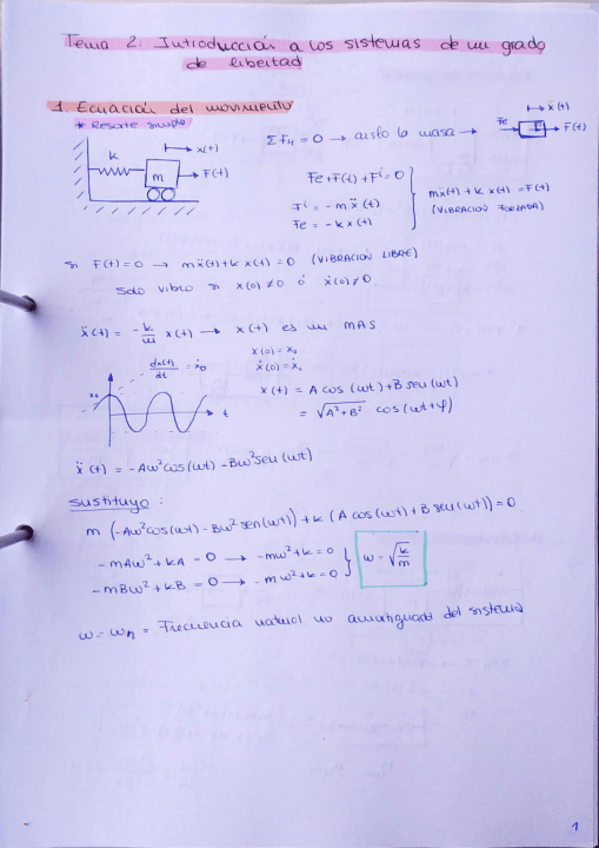 Tema 2: Introducción a los sistemas de un grado
de libertad
1. Ecuación del movimiento
* Resorte simple
ΣF_H = 0 → aíslo la masa →
x(t)
Fe
F(t)
k
m
x(t)
F(t)
Fe + F(t) + Fⁱ = 0
Fⁱ = -mẍ(t)
Fe = -kx(t)
mẍ(t) + k x(t) = F(t)
(VIBRACIÓN FORZADA)
Si F(t) = 0 → mẍ(t) + k x(t) = 0 (VIBRACIÓN LIBRE)
Solo vibra si x(0) ≠ 0 ó ẋ(0) ≠ 0.
ẍ(t) = -k/m x(t) → x(t) es un MAS
dx(t)/dt = ẋ₀
x(0) = x₀
ẋ(0) = ẋ₀
x₀
t
x(t) = A cos(ωt) + B sen(ωt)
= √A²+B² cos(ωt+φ)
ẍ(t) = -Aω²cos(ωt) - Bω²sen(ωt)
Sustituyo:
m (-Aω²cos(ωt) - Bω²sen(ωt)) + k (A cos(ωt) + B sen(ωt)) = 0
-mAω² + kA = 0 → -mω² + k = 0
-mBω² + kB = 0 → -mω² + k = 0
ω = √k/m
ω = ωn = Frecuencia natural no amortiguada del sistema
1